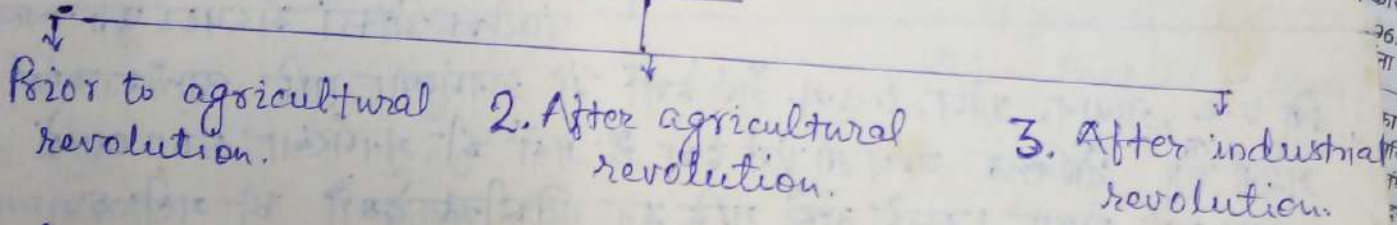 Prior to agricultural
revolution.
2. After agricultural
revolution.
3. After industrial
revolution.